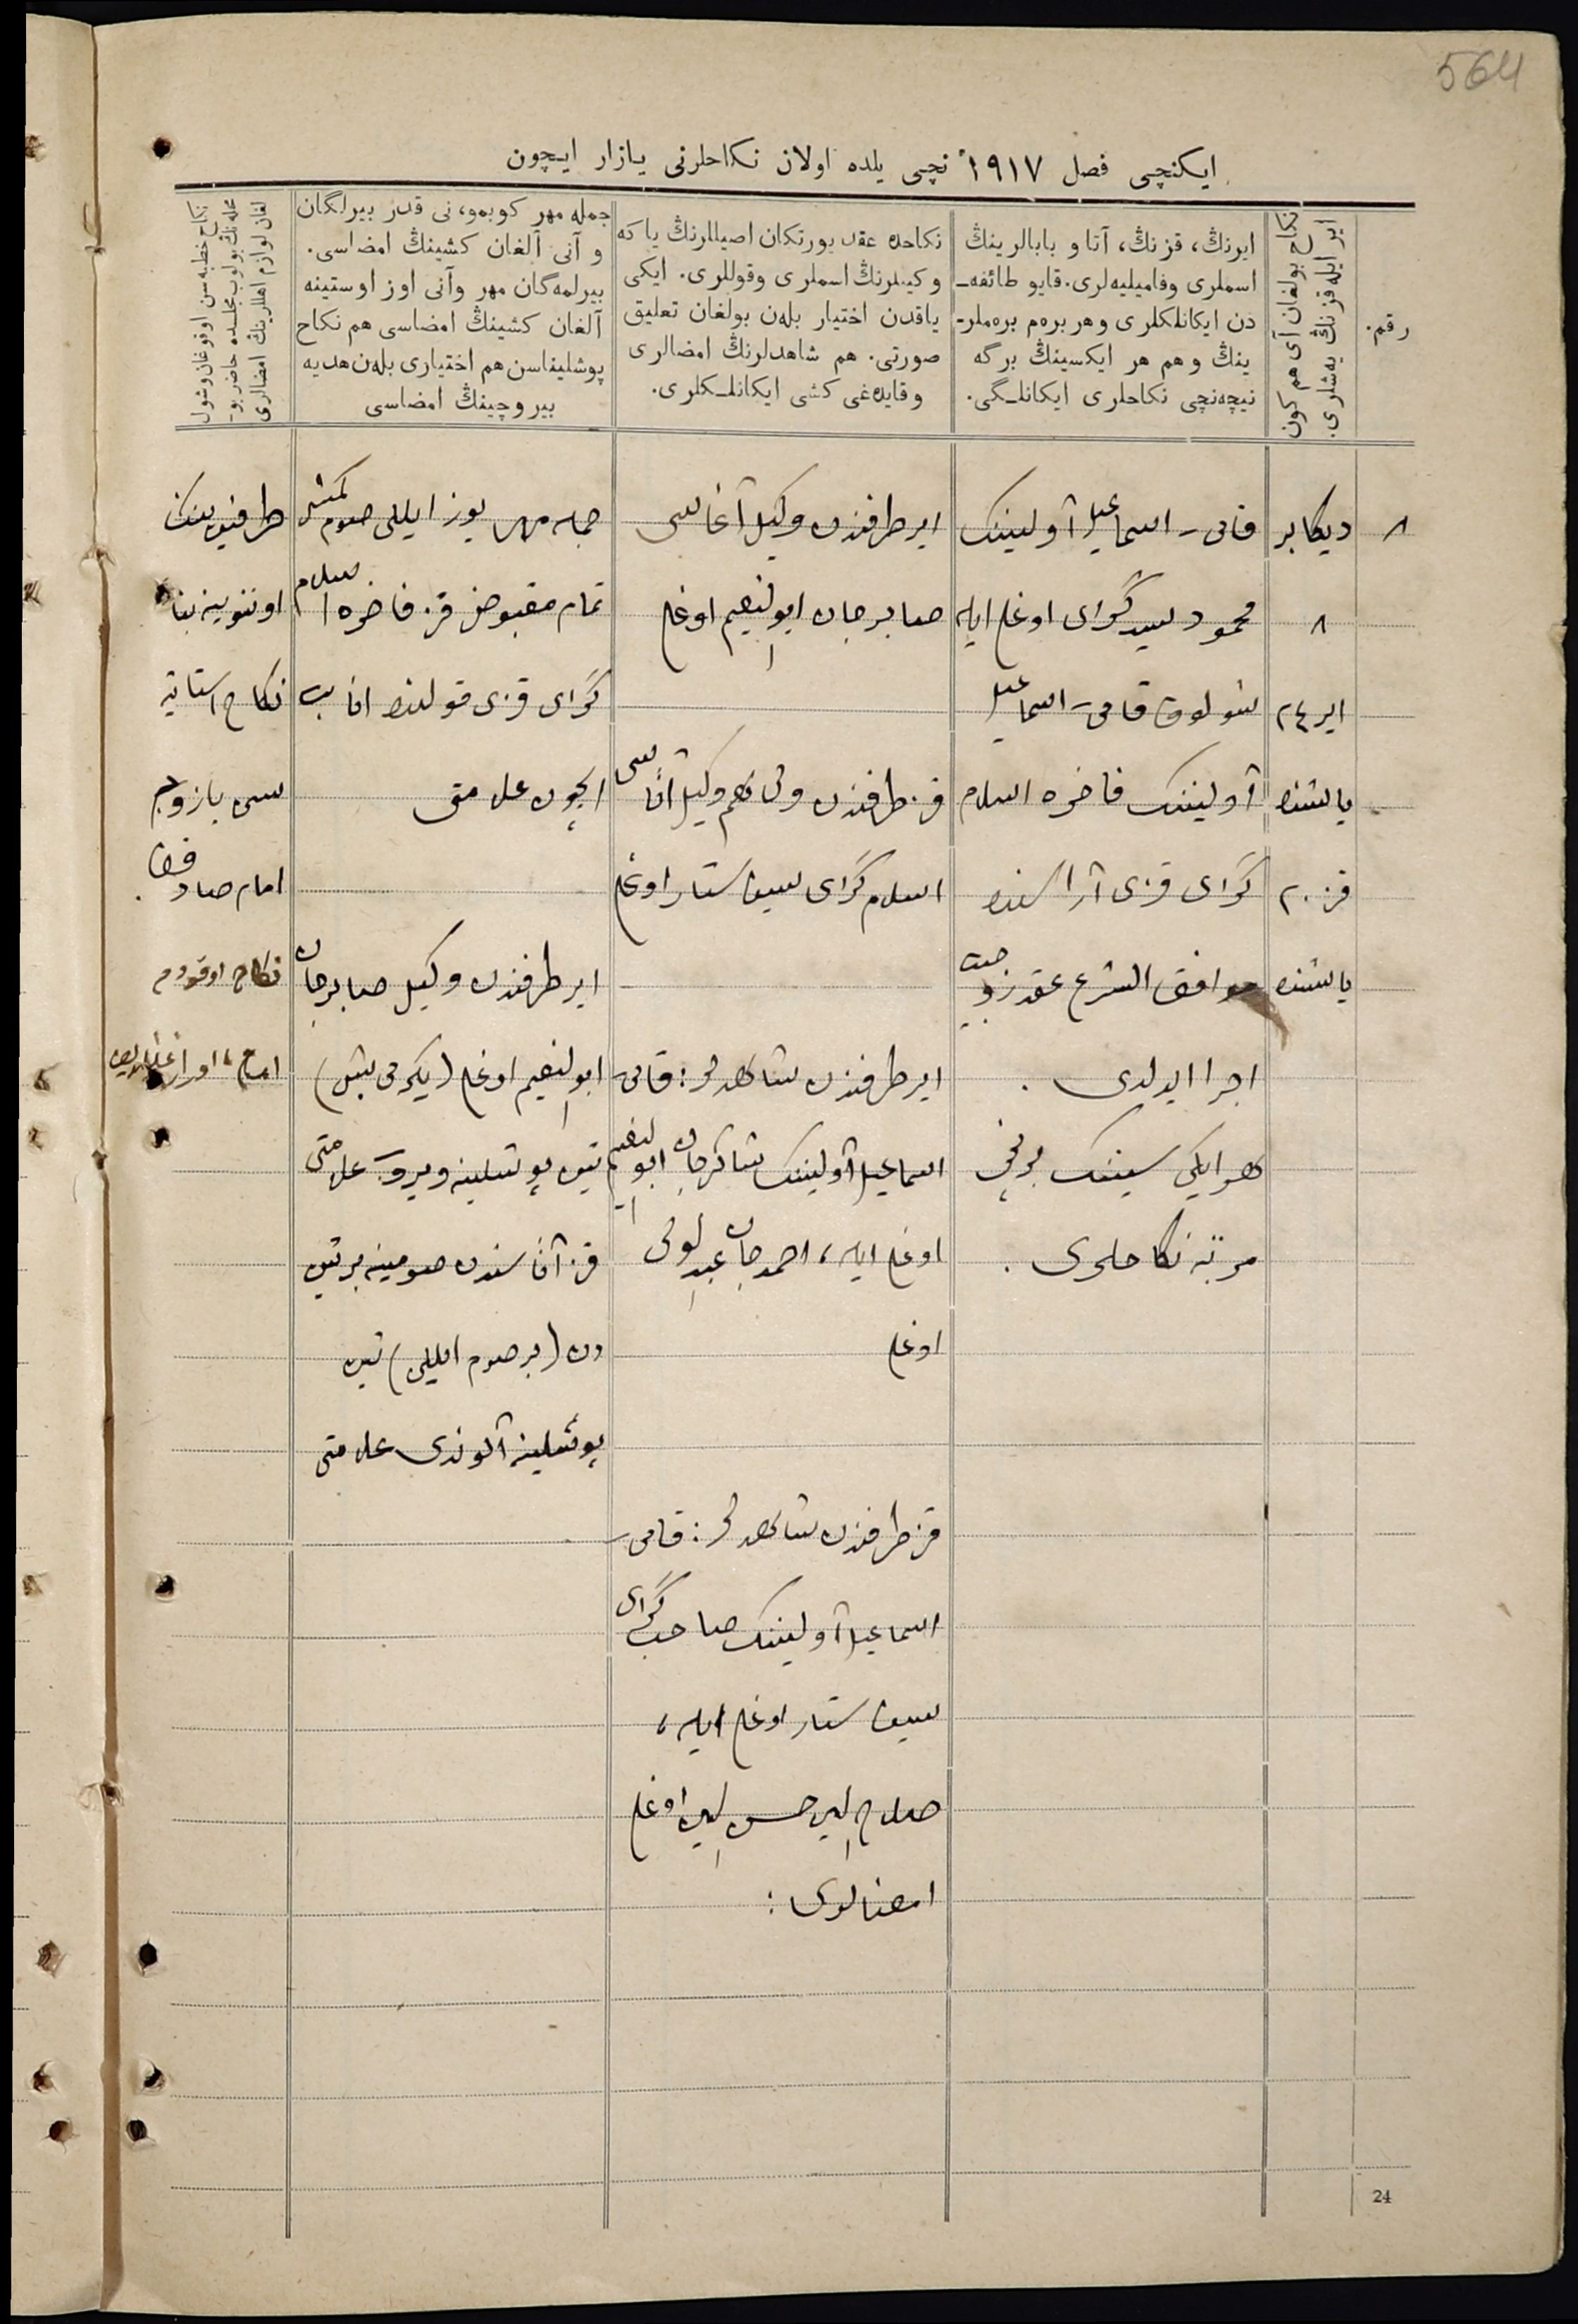 564
ایکنچی فصل ۱۹۱۷ نچی یلده اولان نکاحلرنی یازار ایچون
رقم.
نکاح بولغان آی هم کون
ایر ایله قزنڭ یه‌شلری.
ایرنڭ، قزنڭ، آتا و بابالرینڭ
اسملری وفامیلیه‌لری. قایو طائفه‌ـ
دن ایکانلکلری و هر بره‌م بره‌ملرـ
ینڭ و هم هر ایکسینڭ برگه
نیچه‌نچی نکاحلری ایکانلـگی.
نکاحده عقد یورتکان اصیللارنڭ یا که
وکیلرنڭ اسملری وقوللری. ایکی
یاقدن اختیار بله‌ن بولغان تعلیق
صورتی. هم شاهدلرنڭ امضالری
وقایده‌غی کشی ایکانلـکلری.
جمله مهر کوبمو، نی قدر بیرلگان
و آنی آلغان کشینڭ امضاسی.
بیرلمه‌گان مهر وآنی اوز اوستینه
آلغان کشینڭ امضاسی هم نکاح
پوشلیناسن هم اختیاری بله‌ن هدیه
بیروچینڭ امضاسی
نکاح خطبه‌سن اوقوغان وشول
محله‌نڭ بولوب مجلسده حاضر بوـ
لغان لوازم اهللرینڭ امضالری
۸
دیکابر
۸
ایر ۲٤
یاشنده
قز ۲۰
یاشنده
قامی-اسماعیل آولیننک
محمود سیدگرای اوغلی ایله
شولوق قامی-اسماعیل
آولیننک فاخره اسلام
گرای قزی آراسنده
موافق الشرع عقد زوجیت
اجرا ایدلدی.
هر ایکی سیننک برنچی
مرتبه نکاحلری.
ایر طرفندن وکیل آغاسی
صابرجان ابوالنعیم اوغلی
قز طرفندن ولی هم وکیل آتاسی
اسلام گرای ستار اوغلی
ایر طرفندن شاهدلر: قامی-
اسماعیل آولیننک شاکرجان ابوالنعیم
اوغلی ایله، احمدجان عبدالولی
اوغلی
قز طرفندن شاهدلر: قامی-
اسماعیل آولیننک صاحب گرای
ستار اوغلی ایله،
صلاح الدین حسن الدین اوغلی
امضالری:
جمله مهر یوز ایللی صوم کمش
تمام مقبوض قز فاخره اسلام
گرای قزی قولنده
ایچون علامتی
ایر طرفندن وکیل صابرجان
ابوالنعیم اوغلی (یکرمی بش)
تین پوشلینه ویرو علامتی
قز آتاسندن صومینه بر تین
دن (بر صوم ایللی) تین
پوشلینه آلوندی علامتی
طرفینینک
اوتنوینه بناء
نکاح
سی یازوچی
امام
نکاح اوقودم
24